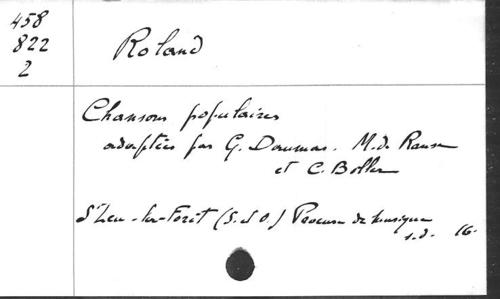 458
822
2
Roland
Chansons populaires
adaptées par G. Daumas. M. de Ranse
et C. Boller
St Leu-la-Foret (S. et O.) Presses de musique
s.d. 16-